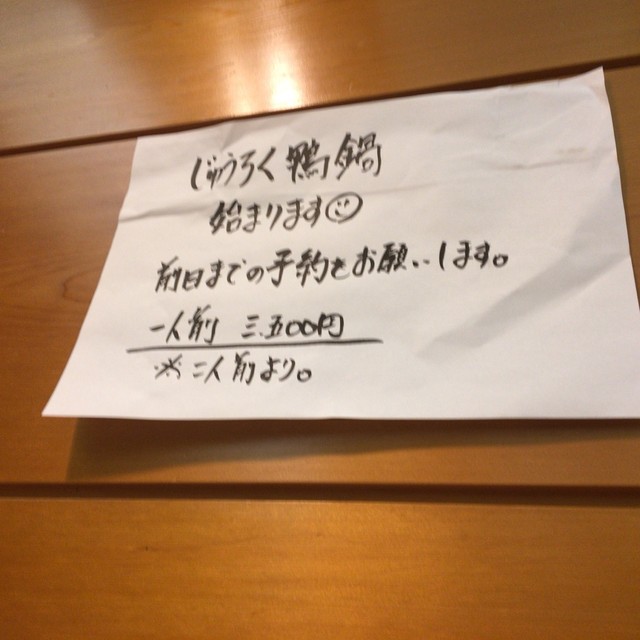 じゅうろく鴨鍋
始まります☺
前日までの予約をお願いします。
一人前 三.五〇〇円
※二人前より。